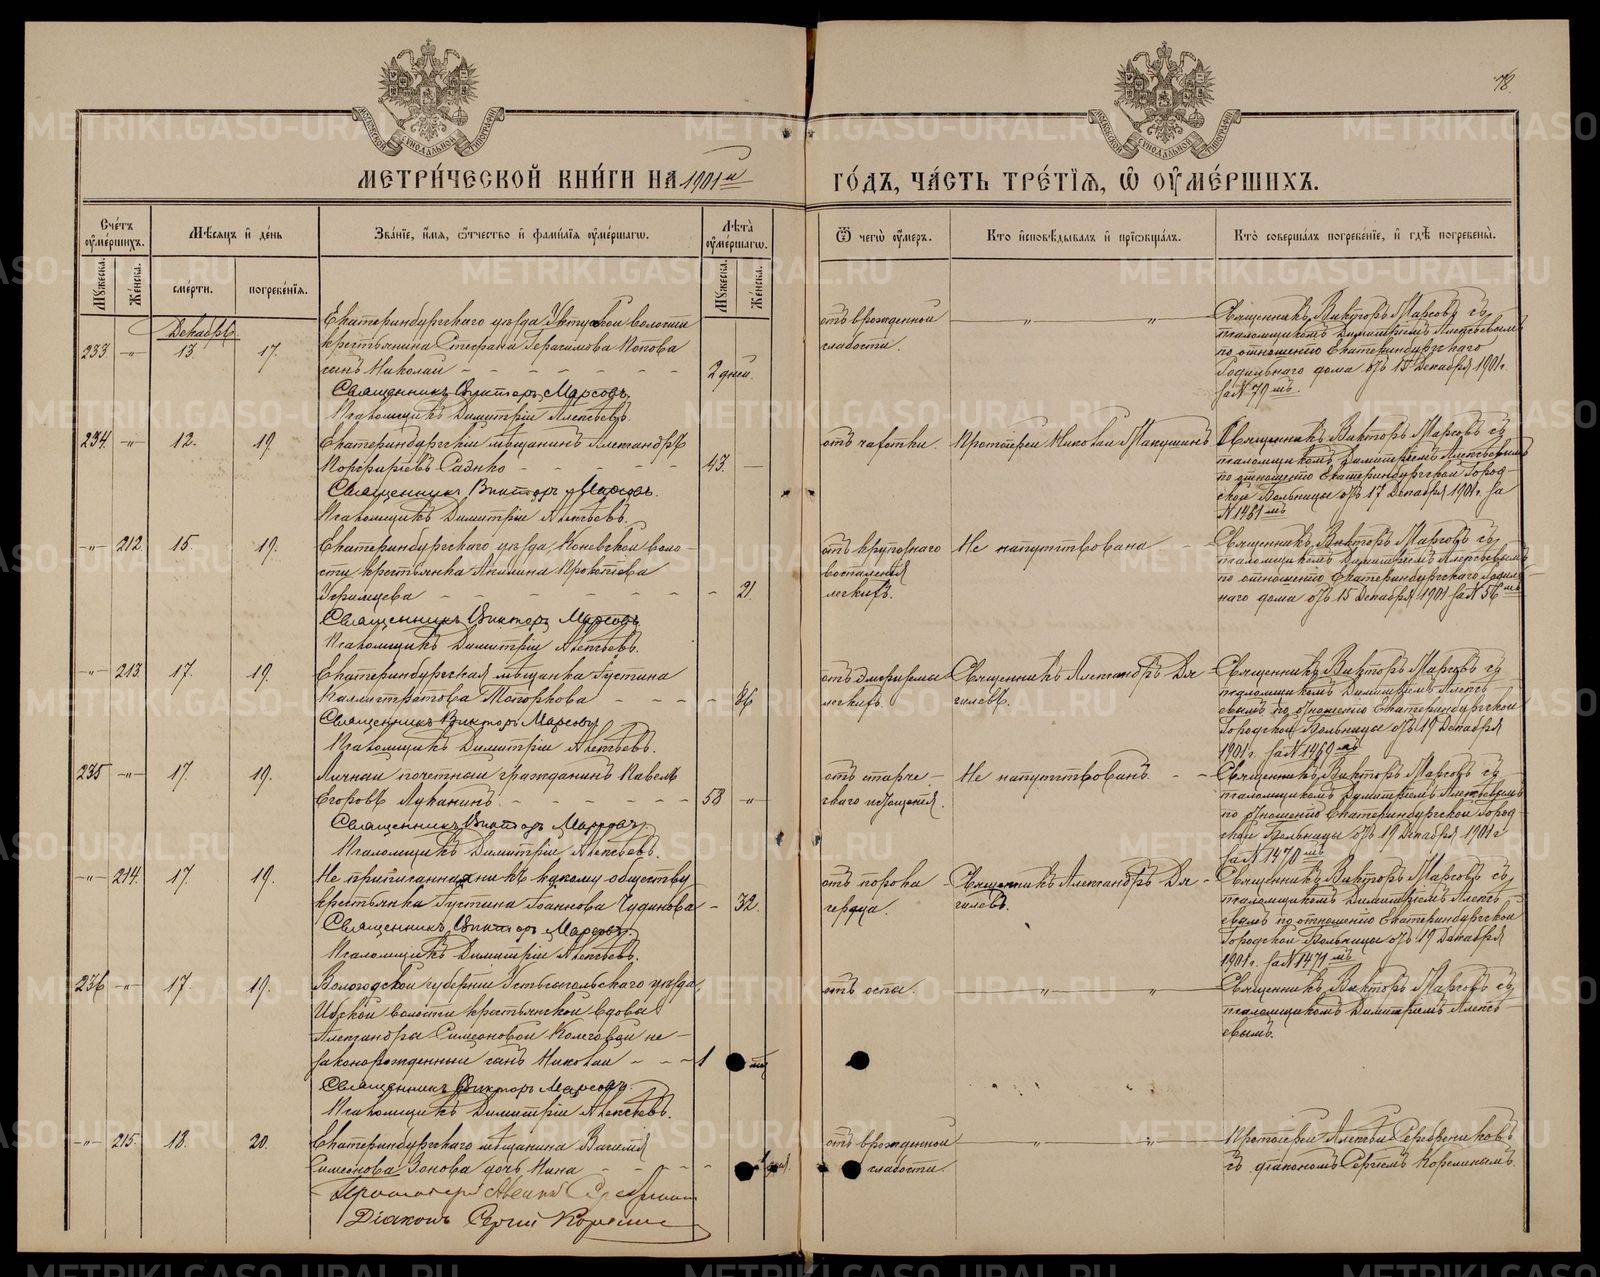 78.
МЕТРИЧЕСКОЙ КНИГИ НА 1901й ГОДЪ, ЧАСТЬ ТРЕТІЯ, Ѿ ОУМЕРШИХЪ.
Счетъ оумершихъ.
Мѣсяцъ и день
Званіе, имя, отчество и фамилія оумершагѡ.
Лѣта оумершагѡ.
Ѿ чегѡ оумеръ.
Кто исповѣдывалъ и пріобщалъ.
Кто совершалъ погребеніе, и гдѣ погребены.
Мужеска.
Женска.
смерти.
погребенія.
Мужеска.
Женска.
Декабрь
233 -"- 13 17.
Екатеринбургскаго уѣзда волости
крестьянина Стефана Герасимова Попова
сынъ Николай 2 дней
Священникъ Викторъ Марсовъ.
Псаломщикъ Димитрій Алексѣевъ.
отъ врожденной
слабости.
Священникъ Викторъ Марсовъ съ
псаломщикомъ Димитріемъ Алексѣевымъ
по отношенію Екатеринбургскаго
Родильнаго дома отъ 15 Декабря 1901 г.
за № 79мъ.
234. -"- 12. 19.
Екатеринбургскій мѣщанинъ Александръ
Порфирьевъ 43.
Священникъ Викторъ Марсовъ.
Псаломщикъ Димитрій Алексѣевъ.
отъ чахотки.
Протоіерей Николай
Священникъ Викторъ Марсовъ съ
псаломщикомъ Димитріемъ Алексѣевымъ
по отношенію Екатеринбургской Город-
ской Больницы отъ 17 Декабря 1901 г. за
№ 1461мъ
-"- 212. 15. 19.
Екатеринбургскаго уѣзда Коневской воло-
сти крестьянка Акилина Прокопіева
21.
Священникъ Викторъ Марсовъ
Псаломщикъ Димитрій Алексѣевъ.
отъ крупознаго
воспаленія
легкихъ.
Не напутствована
Священникъ Викторъ Марсовъ съ
псаломщикомъ Димитріемъ Алексѣевымъ
по отношенію Екатеринбургскаго Родиль-
наго дома отъ 15 Декабря 1901 за № 56мъ
-"- 213. 17. 19.
Екатеринбургская мѣщанка Іустина
Каллистратова 86
Священникъ Викторъ Марсовъ
Псаломщикъ Димитрій Алексѣевъ.
отъ эмфиземы
легкихъ.
Священникъ Александръ Дя-
гилевъ.
Священникъ Викторъ Марсовъ съ
псаломщикомъ Димитріемъ Алексѣ-
евымъ по отношенію Екатеринбургской
Городской Больницы отъ 19 Декабря
1901 г. за № 1469мъ
235 -"- 17. 19.
Личный почетный гражданинъ Павелъ
Егоровъ Луканинъ. 58 -"-
Священникъ Викторъ Марсовъ
Псаломщикъ Димитрій Алексѣевъ.
отъ старче-
скаго истощенія.
Не напутствованъ.
Священникъ Викторъ Марсовъ съ
псаломщикомъ Димитріемъ Алексѣевымъ
по отношенію Екатеринбургской Город-
ской Больницы отъ 19 Декабря 1901 г.
за № 1470мъ
-"- 214. 17. 19.
Не приписанная ни къ какому обществу
крестьянка Іустина Іоаннова Чудинова 32.
Священникъ Викторъ Марсовъ.
Псаломщикъ Димитрій Алексѣевъ.
отъ порока
сердца.
Священникъ Александръ Дя-
гилевъ.
Священникъ Викторъ Марсовъ съ
псаломщикомъ Димитріемъ Алексѣ-
евымъ по отношенію Екатеринбургской
Городской Больницы отъ 19 Декабря
1901 г. за № 1471мъ
236 -"- 17 19.
Вологодской губерніи Устьсысольскаго уѣзда,
Ибской волости крестьянской вдовы
Александры Симеоновой не-
законорожденный сынъ Николай 1
Священникъ Викторъ Марсовъ.
Псаломщикъ Димитрій Алексѣевъ.
отъ оспы.
Священникъ Викторъ Марсовъ съ
псаломщикомъ Димитріемъ Алексѣ-
евымъ.
-"- 215. 18. 20.
Екатеринбургскаго мѣщанина Василія
Симеонова Зонова дочь Нина
Протоіерей Алексій
Діаконъ Сергій Корелинъ
отъ врожденной
слабости.
Протоіерей Алексій Серебренниковъ
съ діакономъ Сергіемъ Корелинымъ.
METRIKI.GASO-URAL.RU